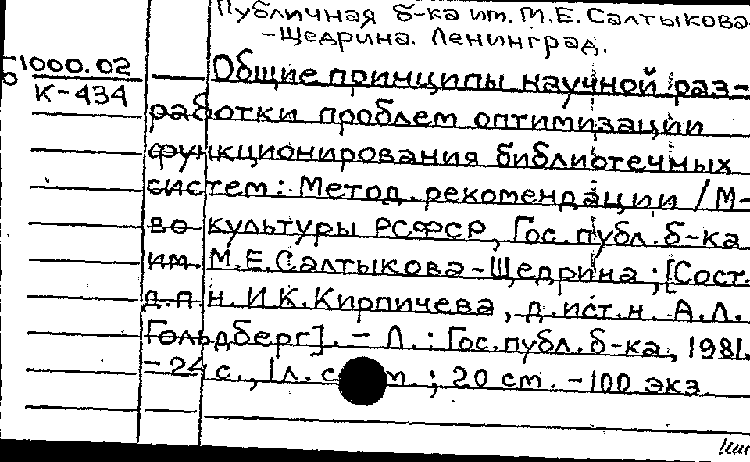 Публичная б-ка им. М.Е.Салтыкова-
-Щедрина. Ленинград.
Б1000.02
К-434
Общие принципы научной раз-
работки проблем оптимизации
функционирования библиотечных
систем: Метод. рекомендации / М-
во культуры РСФСР, Гос. публ. б-ка
им. М.Е.Салтыкова-Щедрина; [Сост.
д.п.н. И.К.Кирпичева, д.ист.н. А.Л.
Гольдберг]. - Л.: Гос. публ. б-ка, 1981.
- 24 с., 1 л. ; 20 cm. - 100 экз.